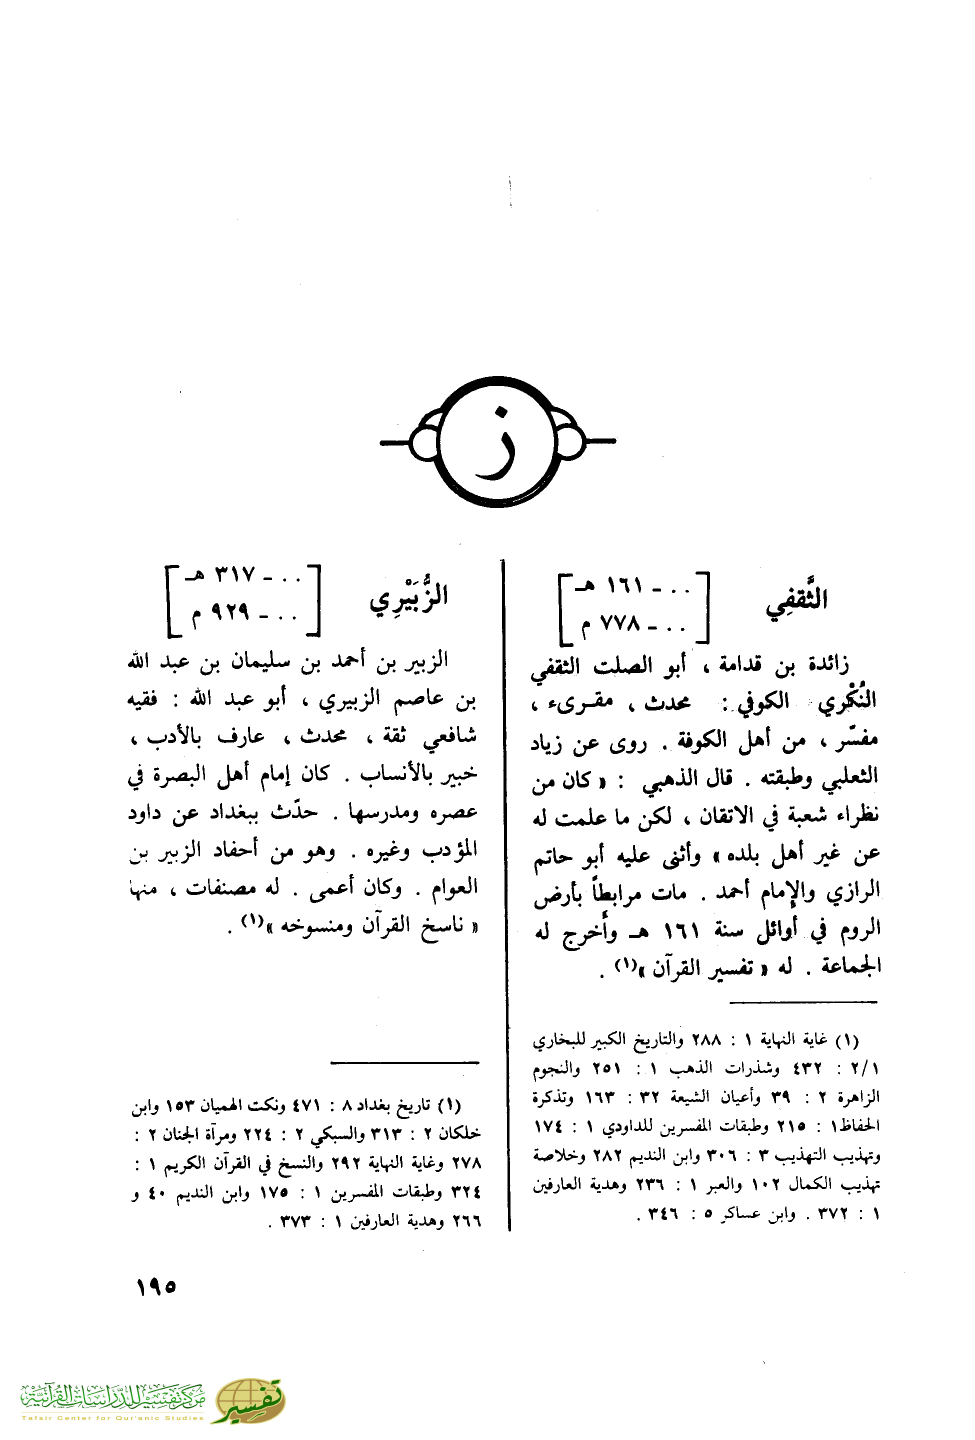 ز
الثَّقفِي
[ .. ـ ١٦١ هـ
.. ـ ٧٧٨ م ]
زائدة بن قدامة ، أبو الصلت الثقفي
النُكْري الكوفي : محدث ، مقرىء ،
مفسّر ، من أهل الكوفة . روى عن زياد
الثعلبي وطبقته . قال الذهبي : « كان من
نظراء شعبة في الاتقان ، لكن ما علمت له
عن غير أهل بلده » وأثنى عليه أبو حاتم
الرازي والإمام أحمد . مات مرابطاً بأرض
الروم في أوائل سنة ١٦١ هـ وأخرج له
الجماعة . له « تفسير القرآن »(١) .
(١) غاية النهاية ١ : ٢٨٨ والتاريخ الكبير للبخاري
٢/١ : ٤٣٢ وشذرات الذهب ١ : ٢٥١ والنجوم
الزاهرة ٢ : ٣٩ وأعيان الشيعة ٣٢ : ١٦٣ وتذكرة
الحفاظ ١ : ٢١٥ وطبقات المفسرين للداودي ١ : ١٧٤
وتهذيب التهذيب ٣ : ٣٠٦ وابن النديم ٢٨٢ وخلاصة
تهذيب الكمال ١٠٢ والعبر ١ : ٢٣٦ وهدية العارفين
١ : ٣٧٢ . وابن عساكر ٥ : ٣٤٦ .
الزُّبَيْرِي
[ .. ـ ٣١٧ هـ
.. ـ ٩٢٩ م ]
الزبير بن أحمد بن سليمان بن عبد الله
بن عاصم الزبيري ، أبو عبد الله : فقيه
شافعي ثقة ، محدث ، عارف بالأدب ،
خبير بالأنساب . كان إمام أهل البصرة في
عصره ومدرسها . حدّث ببغداد عن داود
المؤدب وغيره . وهو من أحفاد الزبير بن
العوام . وكان أعمى . له مصنفات ، منها
« ناسخ القرآن ومنسوخه »(١) .
(١) تاريخ بغداد ٨ : ٤٧١ ونكت الهميان ١٥٣ وابن
خلكان ٢ : ٣١٣ والسبكي ٢ : ٢٢٤ ومرآة الجنان ٢ :
٢٧٨ وغاية النهاية ٢٩٢ والنسخ في القرآن الكريم ١ :
٣٢٤ وطبقات المفسرين ١ : ١٧٥ وابن النديم ٤٠ و
٢٦٦ وهدية العارفين ١ : ٣٧٣ .
١٩٥
مركز تفسير للدراسات القرآنية
Tafsir Center for Qur'anic Studies
تفسير